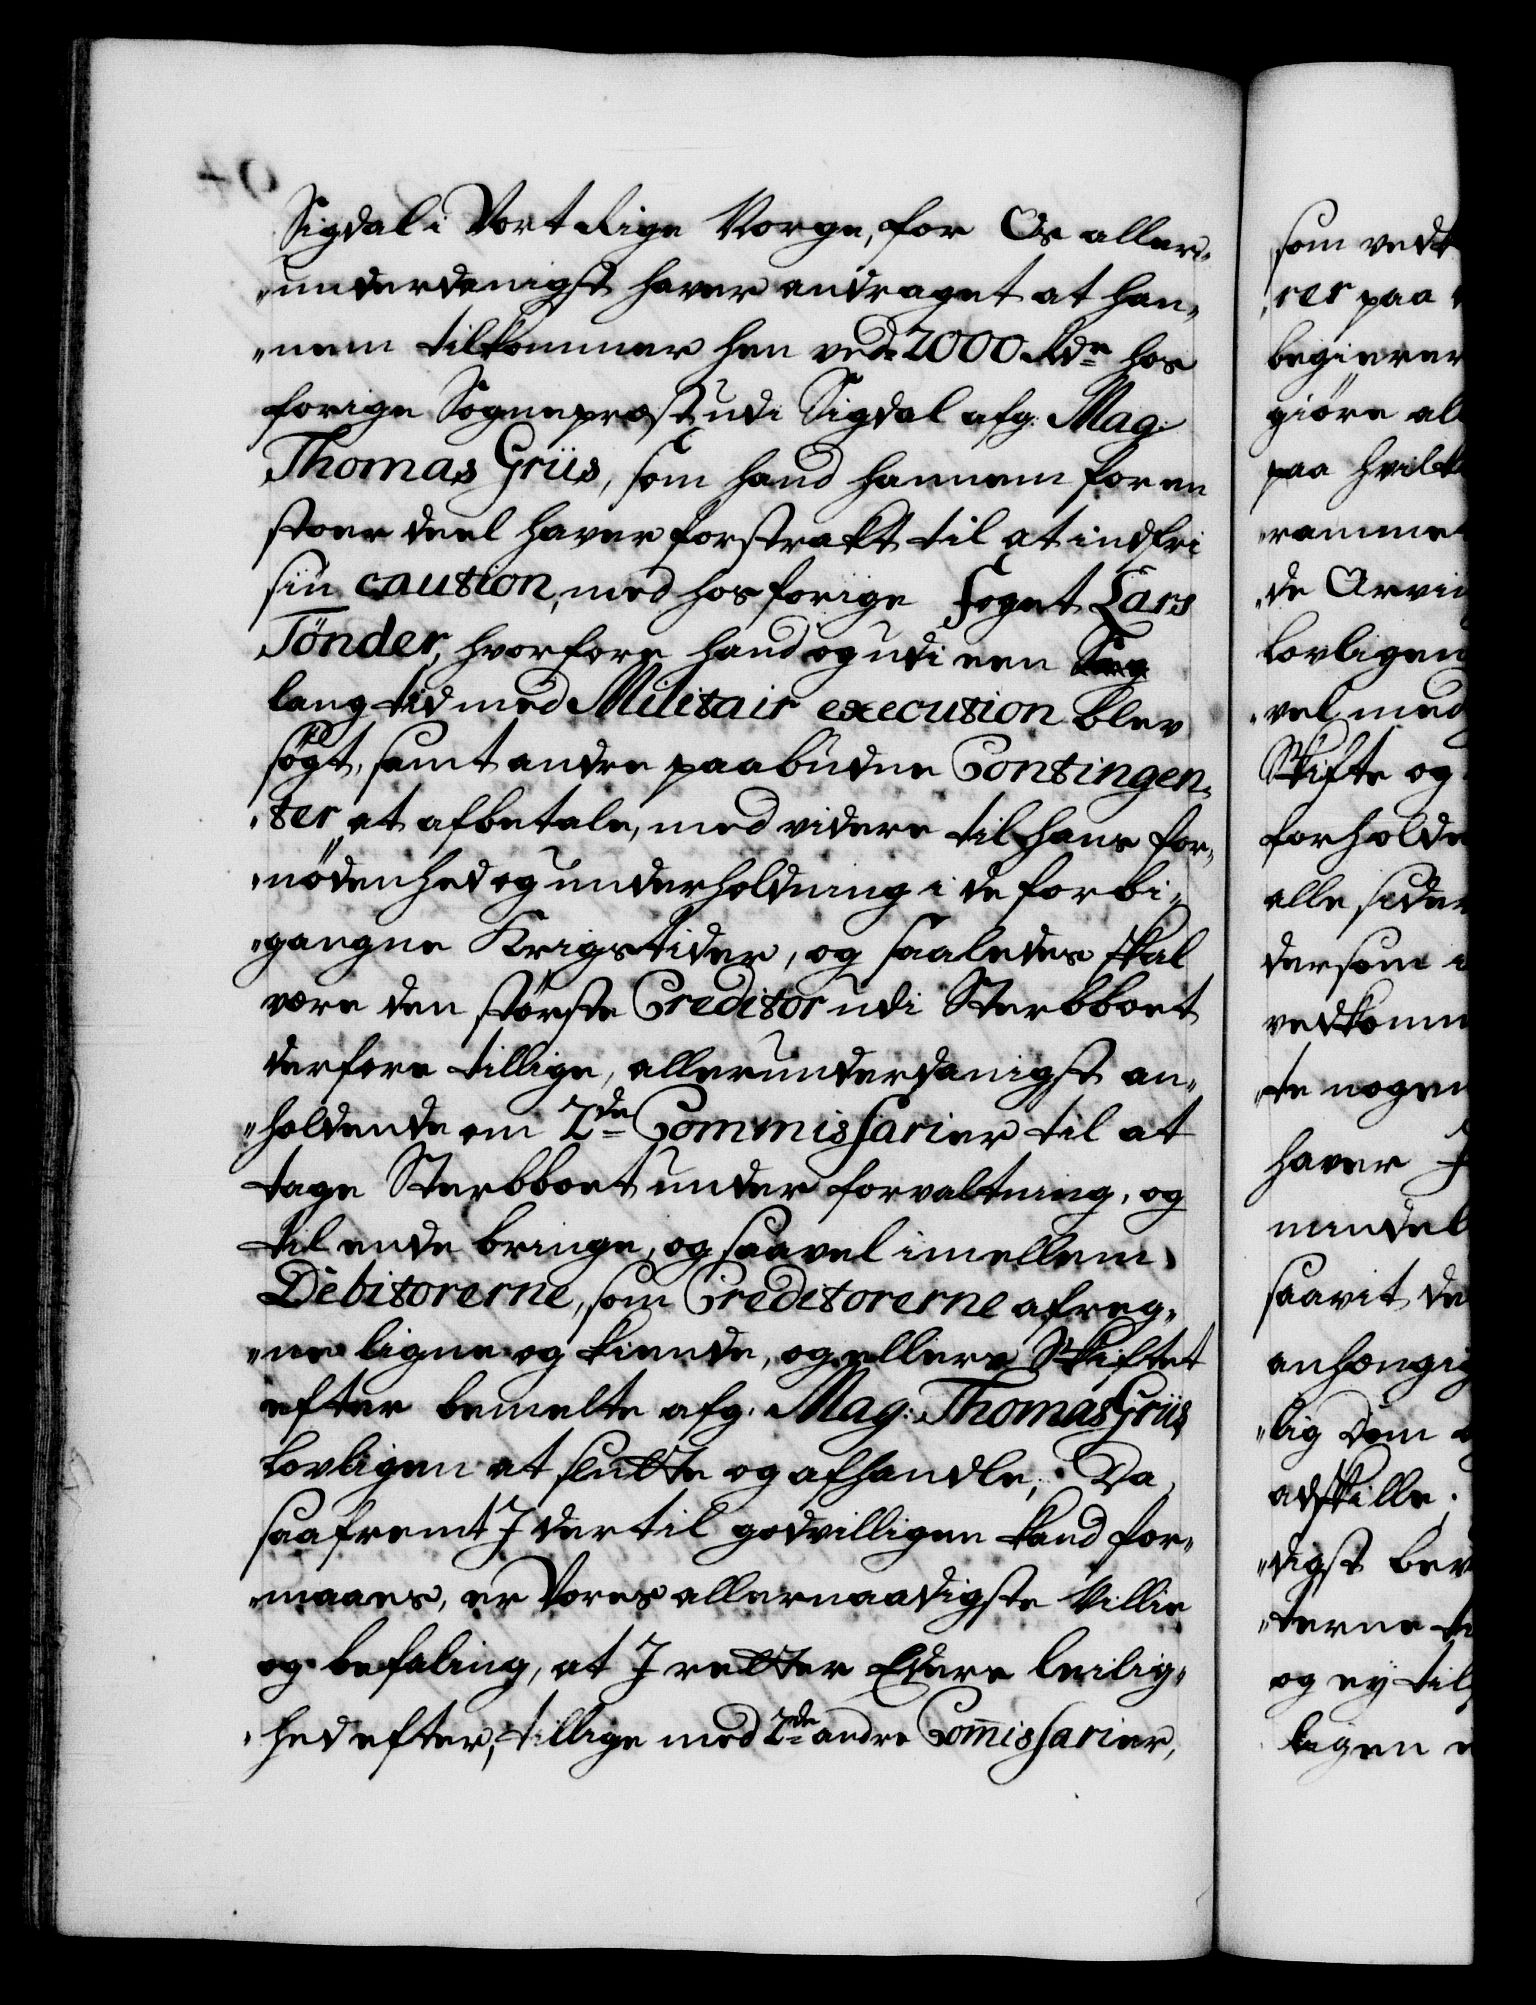 Sigdal i Vort Rige Norge, for Os aller-
"underdanigst haver andraget at han-
"nem tilkommer hen ved 2000 Rdr hos
forige Sogneprest udi Sigdal afg: Mag:
Thomas Griis, som hand hannem for en
stoer deel haver forstrakt til at indfri
sin caution, med hos forige Foget Lars
Tönder, hvorfore hand og udi een
lang tid med Militair execution blev
sögt, samt andre paabudne Contingen-
"ter at afbetale, med videre til hans for-
"nödenhed og underholdning i de forbi-
"gangne Krigstider, og saaledes skal
være den störste Creditor udi Sterbboet
derfore tillige, allerunderdanigst an-
"holdende om 2de Commissarier til at
tage Sterbboet under forvaltning, og
til ende bringe, og saavel imellem
Debitorerne, som Creditorerne afreg-
"ne ligne og kiende, og ellers Skiftet
efter bemelte afg: Mag: Thomas Griis
lovligen at slutte og afhandle; Da
saafremt I dertil godvilligen kand for-
"maaes, er Vores allernaadigste Villie
og befaling, at I retter Eders leilig-
"hed efter, tillige med 2de andre Com̅issarier,
som vedk
rer paa
begierer
giöre al
paa hvilk
"ramme
"de Arvin
lovligen
vel med
Skifte og
forholde
alle sider
dersom
vedkomm
"te nogen
haver I
mindel
saavit de
anhængig
"lig Dom
adskille.
"digst bev
"terne
og ey til
ligen